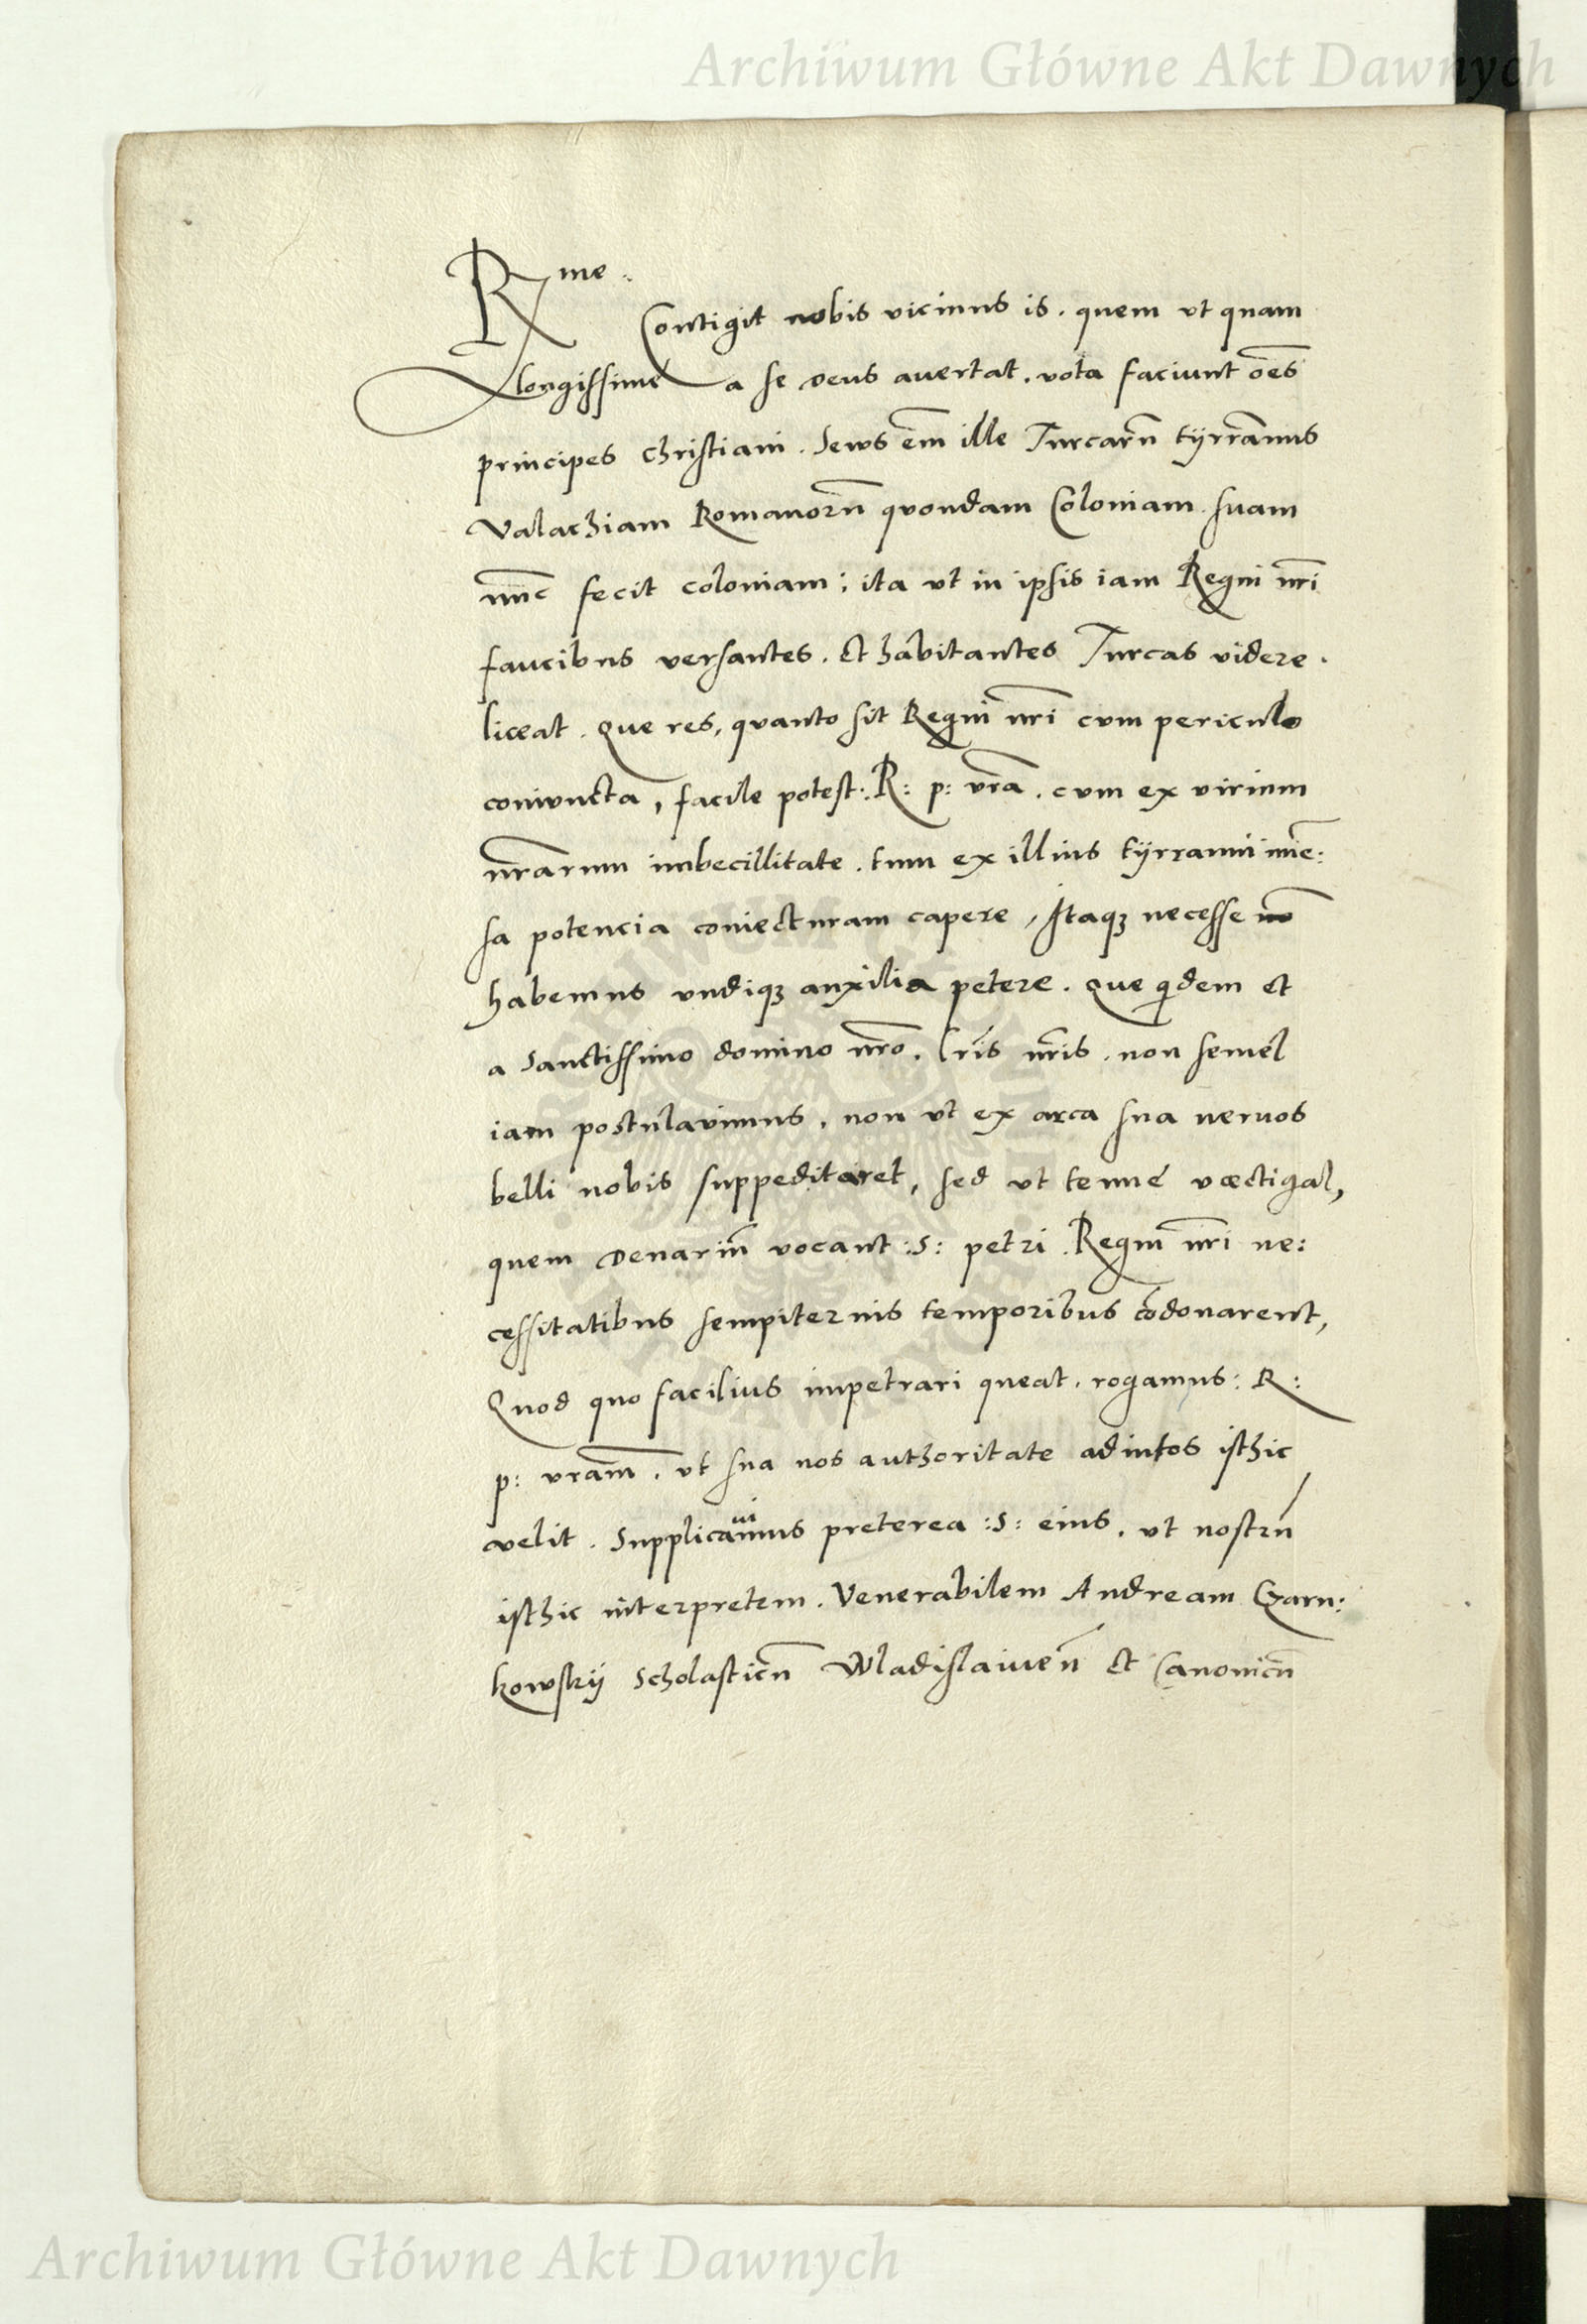 Archiwum Główne Akt Dawnych
R me
Contigit nobis vicinus is . quem vt quam
longissime a se deus avertat . vota faciunt oēs
principes christiani . Sews em̄ ille Turcarū tÿrrannus
Valachiam Romanorū quondam Coloniam suam
nūc fecit coloniam ; ita vt in ipsis iam Regni nrī
faucibus versantes . et habitantes Turcas videre .
liceat . Que res, quanto sit Regni nrī cum periculo
coniuncta , facile potest : R : p : vrā . cum ex virium
nrārum imbecillitate . tum ex illius tÿrranni imē :
sa potencia coniecturam capere , Itaqꝫ necesse
habemus vndiqꝫ auxilia petere . Que qdem et
a Sanctissimo domino nrō . Lrīs nrīs . non semel
iam postulavimus , non vt ex arca sua nervos
belli nobis suppeditaret , sed vt tenue vectigal ,
quem Denariū vocant : S : petri . Regni nrī ne :
cessitatibus sempiternis temporibus cōdonarent ,
Quod quo facilius impetrari queat . rogamus : R :
p : vrām . vt sua nos authoritate adiutos isthic
velit . Supplicavimus preterea : S : eius . vt nostrū
isthic interpretem . Venerabilem Andream Czarn :
kowskÿ Scholasticū Wladislauieñ et Canonicū
Archiwum Główne Akt Dawnych